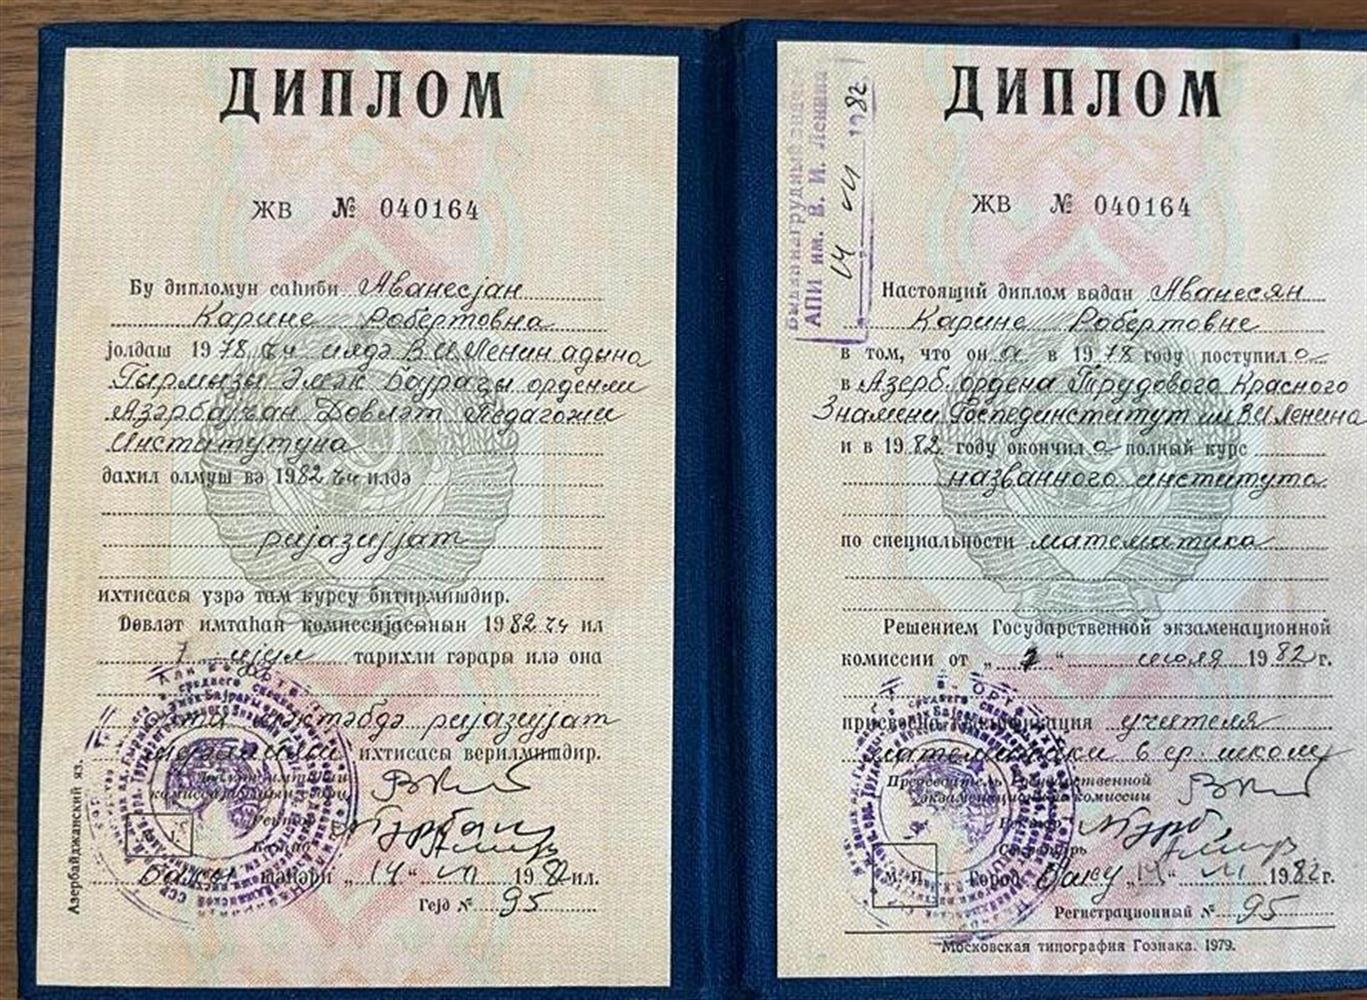 ДИПЛОМ
ЖВ № 040164
Бу дипломун саһиби Аванесјан
Карине Робертовна
јолдаш 1978 ҹи илдә В.И.Ленин адына
Гырмызы Әмәк Бајрағы орденли
Азәрбајҹан Дөвләт Педагожи
Институтуна
дахил олмуш вә 1982 ҹи илдә
ријазијјат
ихтисасы үзрә там курсу битирмишдир.
Дөвләт имтаһан комиссијасынын 1982 ҹи ил
7 ијул тарихли гәрары илә она
орта мәктәбдә ријазијјат
мүәллими ихтисасы верилмишдир.
Дөвләт имтаһан
комиссијасынын сәдри
Ректор
Катиб
Бакы шәһәри „14“ VII 1982 ил.
Гејд № 95
Азербайджанский яз.
ДИПЛОМ
ЖВ № 040164
АПИ им. В. И. Ленина
14 VII 1982
Настоящий диплом выдан Аванесян
Карине Робертовне
в том, что он а в 1978 году поступил а
в Азерб. ордена Трудового Красного
Знамени Госпединститут им В.И Ленина
и в 1982 году окончил а полный курс
названного института
по специальности математика
Решением Государственной экзаменационной
комиссии от „7“ июля 1982 г.
присвоена квалификация учителя
математики в ср. школе
Председатель Государственной
экзаменационной комиссии
Ректор
Секретарь
М. П. Город Баку „14“ VII 1982 г.
Регистрационный № 95
Московская типография Гознака. 1979.